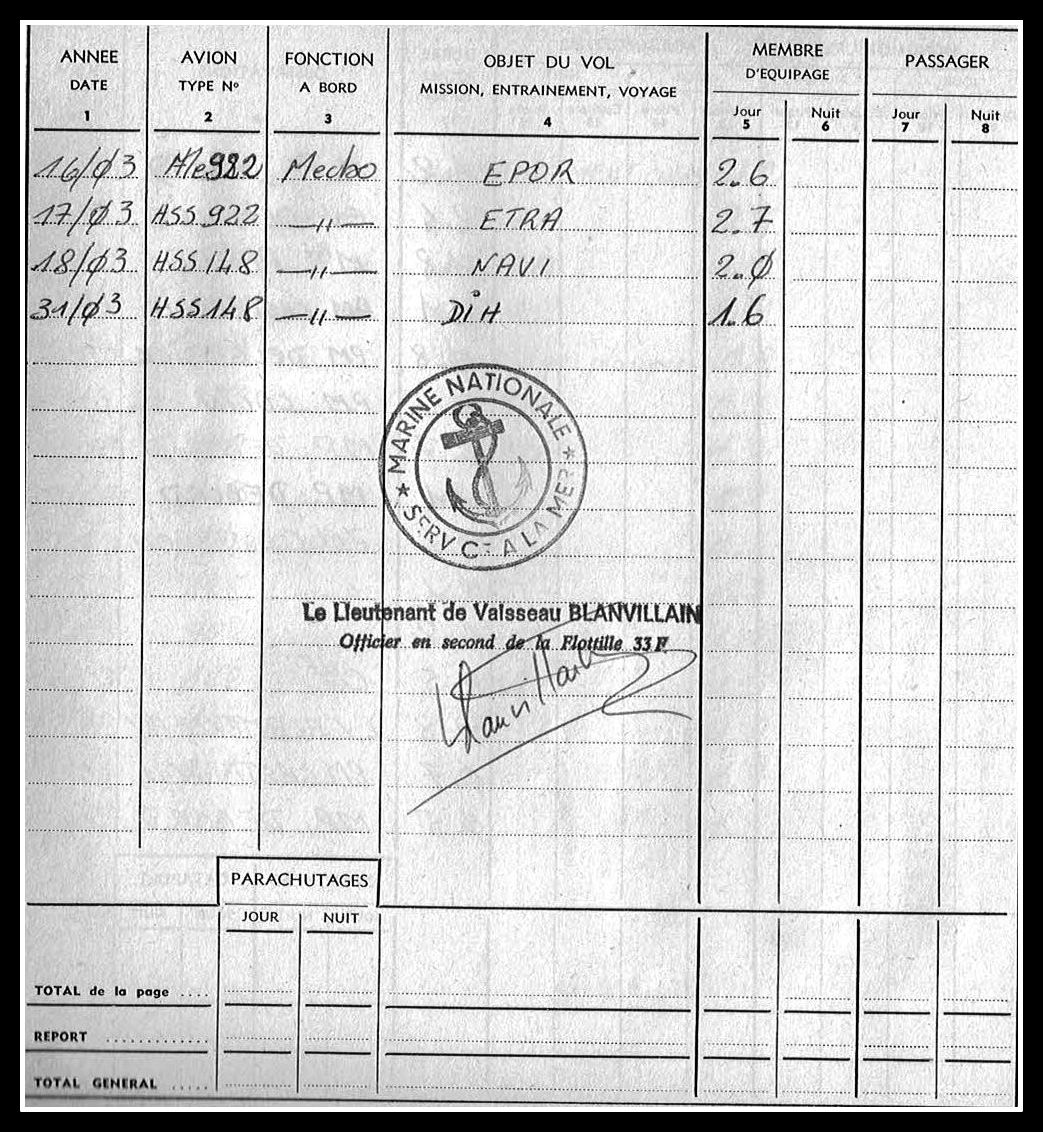 ANNEE AVION FONCTION OBJET DU VOL MEMBRE PASSAGER
DATE TYPE N° A BORD MISSION, ENTRAINEMENT, VOYAGE D'EQUIPAGE
Jour Nuit Jour Nuit
1 2 3 4 5 6 7 8
16/Ø3 982 Mecbo EPOR 2.6
17/Ø3 HSS 922 —〃— ETRA 2.7
18/Ø3 HSS 148 —〃— NAVI 2.Ø
31/Ø3 HSS 148 —〃— DiH 1.6
★ MARINE NATIONALE ★
SERVICE A LA MER
Le Lieutenant de Vaisseau BLANVILLAIN
Officier en second de la Flottille 33 F
Blanvillain
PARACHUTAGES
JOUR NUIT
TOTAL de la page ....
REPORT ............
TOTAL GENERAL .....